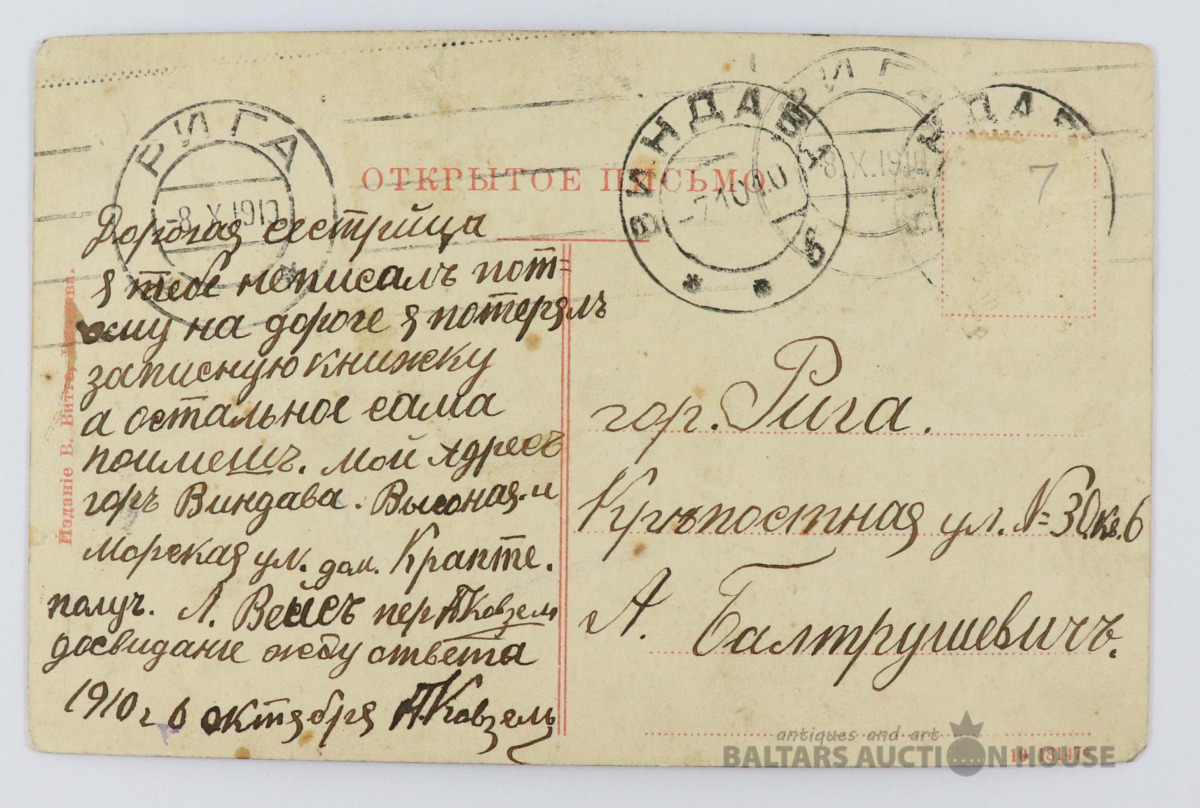 РИГА
-8.X.1910
ВИНДАВА
-7 10 10
РИГА
8.X.1910
7
ОТКРЫТОЕ ПИСЬМО
Дорогая сестрица
я тебе неписалъ пот=
ому на дороге я потерялъ
записную книжку
а остальное сама
поимешъ. мой Адресъ
горъ Виндава. Высоная-и
морская ул. дом. Крапте.
получ. Л. Вейсъ пер А Ковзель
досвидание жду ответа
1910 г 6 октября А.Ковзель
гор. Рига.
Крѣпостная ул. №=30.кв.6
А. Балтрушевичъ.
Изданіе В. Витта,
antiques and art
BALTARS AUCTION HOUSE